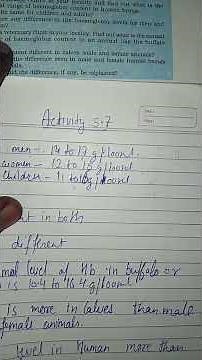 range of haemoglobin content in human beings.
the same for children and adults?
any difference in the haemoglobin levels for men and
a veterinary clinic in your locality. Find out what is the normal
of haemoglobin content in an animal like the buffalo
content different in calves, male and female animals?
the difference seen in male and female human beings
animals?
the difference, if any, be explained?
Activity 5.7
men - 14 to 17 g/100ml
women - 12 to 15 g/100ml
Children - 11 to 16g/100ml
in both
different
level of Hb in buffalo or
is 10.4 to 16.4 g/100ml
is more in calves than male
female animals.
level in human more than